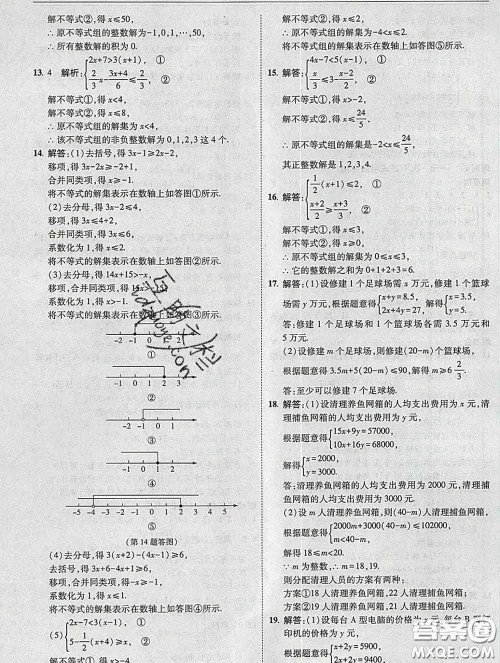 解不等式②,得 x≤50,
∴原不等式组的整数解为-1,0,1,…,50,
∴所有整数解的积为 0.
13. 4 解析: {2x+7>3(x+1), ①
2/3x-(3x+4)/6≤2/3, ②
解不等式①,得 x<4,
解不等式②,得 x≤8,
∴原不等式组的解集为 x<4,
∴该不等式组的非负整数解为 0,1,2,3 这 4 个.
14. 解答:(1)去括号,得 3x-1≥2x-2,
移项,得 3x-2x≥-2+1,
合并同类项,得 x≥-1.
将不等式的解集表示在数轴上如答图①所示.
(2)去分母,得 3x-2≤4,
移项,得 3x≤4+2,
合并同类项,得 3x≤6.
系数化为 1,得 x≤2.
将不等式的解集表示在数轴上如答图②所示.
(3)去分母,得 14x+15>-x,
移项,得 14x+x>-15,
合并同类项,得 15x>-15.
系数化为 1,得 x>-1.
将不等式的解集表示在数轴上如答图③所示.
-1 0 1 2 3
①
-1 0 1 2 3
②
-2 -1 0 1 2
③
-1 0 1 2 3
④
-5 -4 -3 -2 -1 0 1 2 3 4
⑤
(第 14 题答图)
(4)去分母,得 3(x+2)-(4x-1)≥6,
去括号,得 3x+6-4x+1≥6,
移项、合并同类项,得-x≥-1,
系数化为 1,得 x≤1.
将不等式的解集表示在数轴上如答图④所示.
(5) {2x-7<3(x-1), ①
5-1/2(x+4)≥x, ②
解不等式①,得 x>-4,
解不等式②,得 x≤2,
∴原不等式组的解集为-4<x≤2.
将不等式组的解集表示在数轴上如答图⑤所示.
15. 解答: {4x-7<5(x-1), ①
x/3≤3-(x-2)/2, ②
解不等式①,得 x>-2,
解不等式②,得 x≤24/5,
∴原不等式组的解集为-2<x≤24/5,
其正整数解为 1,2,3,4.
16. 解答: {1/2(x+1)≤2, ①
(x+2)/2≥(x+3)/3, ②
解不等式①,得 x≤3,
解不等式②,得 x≥0,
∴原不等式组的解集为 0≤x≤3,
∴它的整数解之和为 0+1+2+3=6.
17. 解答:(1)设修建 1 个足球场需 x 万元,修建 1 个篮球
场需 y 万元,根据题意得 {x+y=8.5,
2x+4y=27,
答:修建 1 个足球场和 1 个篮球场各需 3.5 万元和
5 万元.
(2)设修建 m 个足球场,则修建(20-m)个篮球场,
根据题意得 3.5m+5(20-m)≤90,解得 m≥6 2/3.
答:至少可以修建 7 个足球场.
18. 解答:(1)设清理养鱼网箱的人均支出费用为 x 元,清
理捕鱼网箱的人均支出费用为 y 元,
根据题意得 {15x+9y=57000,
10x+16y=68000,
解得 {x=2000,
y=3000.
答:清理养鱼网箱的人均支出费用为 2000 元,清理捕
鱼网箱的人均支出费用为 3000 元.
(2)设 m 人清理养鱼网箱,则(40-m)人清理捕鱼网箱,
根据题意得 {2000m+3000(40-m)≤102000,
m<40-m,
解得 18≤m<20.
∵m 为整数,∴m=18,19.
则分配清理人员的方案有两种:
方案①18 人清理养鱼网箱,22 人清理捕鱼网箱;
方案②19 人清理养鱼网箱,21 人清理捕鱼网箱.
19. 解答:(1)设每台 A 型电脑的价格为 x 元,每台 B 型打
印机的价格为 y 元,
根据题意得 {x+2y=5900,
2x+2y=9400,
答案圈
MXQE.COM